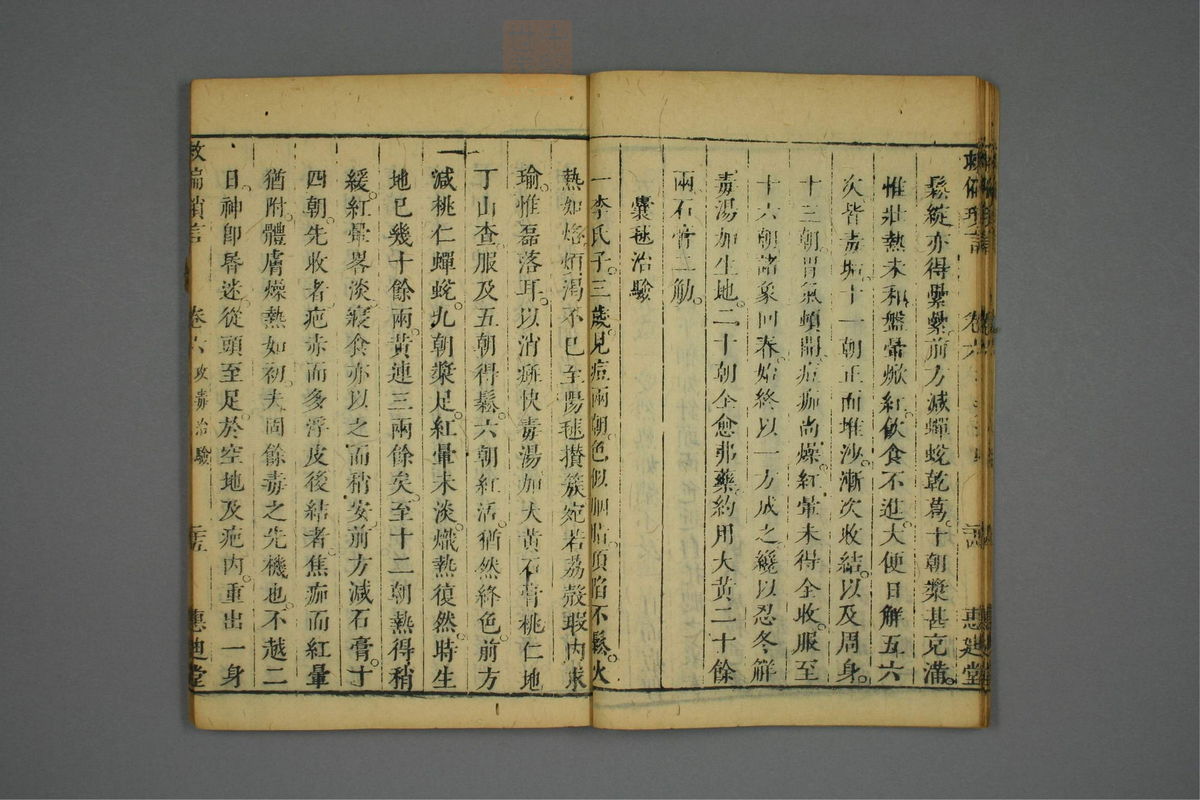 鬆綻亦得纍纍。前方減蟬蛻乾葛。十朝漿甚充滿。
惟壯熱未和。盤暈焮紅。飲食不進。大便日解五六
次皆毒垢。十一朝正面堆沙。漸次收結。以及周身。
十三朝。胃氣頓開。痘痂尚燥。紅暈未得全收。服至
十六朝諸象回春。始終以一方成之。纔以忍冬解
毒湯加生地。二十朝全愈弗藥。約用大黃二十餘
兩。石膏二觔。
囊毬治驗
一李氏子。三歲。見痘兩朝。色似胭脂。頂陷不鬆。火
熱如烙。煩渴不已。至陽毬攢簇。宛若荔殼。瑕內求
瑜。惟磊落耳。以消瘀快毒湯加大黃石膏桃仁地
丁山查。服及五朝得鬆。六朝紅活猶然終色。前方
減桃仁蟬蛻。九朝漿足。紅暈未淡。熾熱復然。時生
地已幾十餘兩。黃連三兩餘矣。至十二朝熱得稍
緩。紅暈畧淡。寢食亦以之而稍安。前方減石膏。十
四朝。先收者疤赤而多浮皮。後結者。焦痂而紅暈
猶附。體膚燥熱如初。夫固餘毒之先機也。不越二
日。神卽昏迷。從頭至足。於空地及疤內。重出一身
救偏瑣言 卷六 攻毒治驗 惠迪堂
卷六 惠迪堂